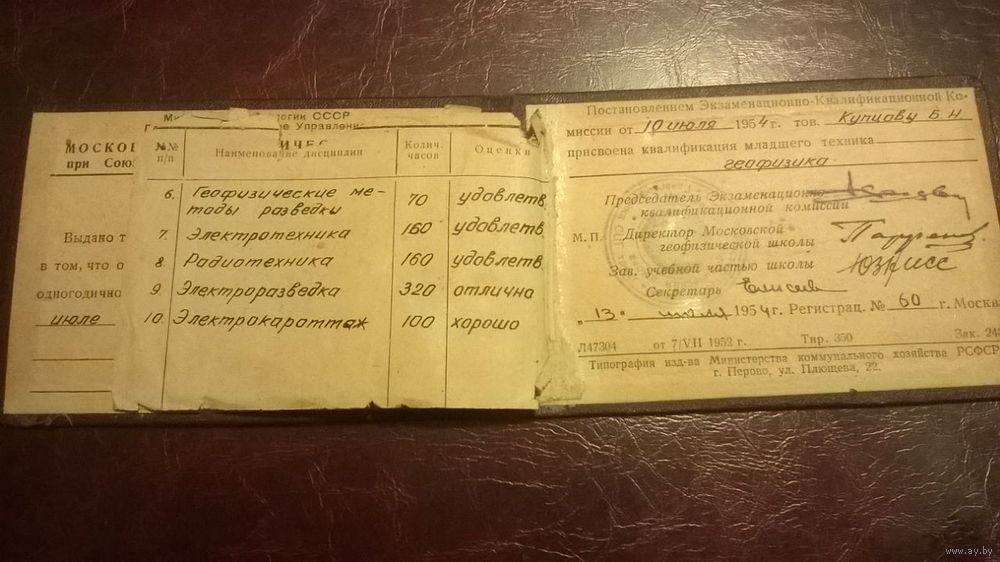 Ми логии СССР
Г ое Управлени
МОСКОВ ИЧЕС
при Союз
№№ п/п Наименование дисциплин Колич. часов Оценки
6. Геофизические ме-
тоды разведки 70 удовлетв
7. Электротехника 160 удовлетв
8. Радиотехника 160 удовлетв
9. Электроразведка 320 отлично
10. Электрокаротаж 100 хорошо
Выдано т
в том, что о
одногодично
июле
Постановлением Экзаменационно-Квалификационной Ко-
миссии от 10 июля 1954 г. тов. Купцову Б. Н
присвоена квалификация младшего техника
геофизика
Председатель Экзаменационно-
квалификационной комиссии
М. П. Директор Московской
геофизической школы
Зав. учебной частью школы
Секретарь Елисеев
"13" июля 1954 г. Регистрац. № 60 г. Москва
Л47304 от 7/VII 1952 г. Тир. 350 Зак. 243
Типография изд-ва Министерства коммунального хозяйства РСФСР
г. Перово, ул. Плющева, 22.
www.ay.by